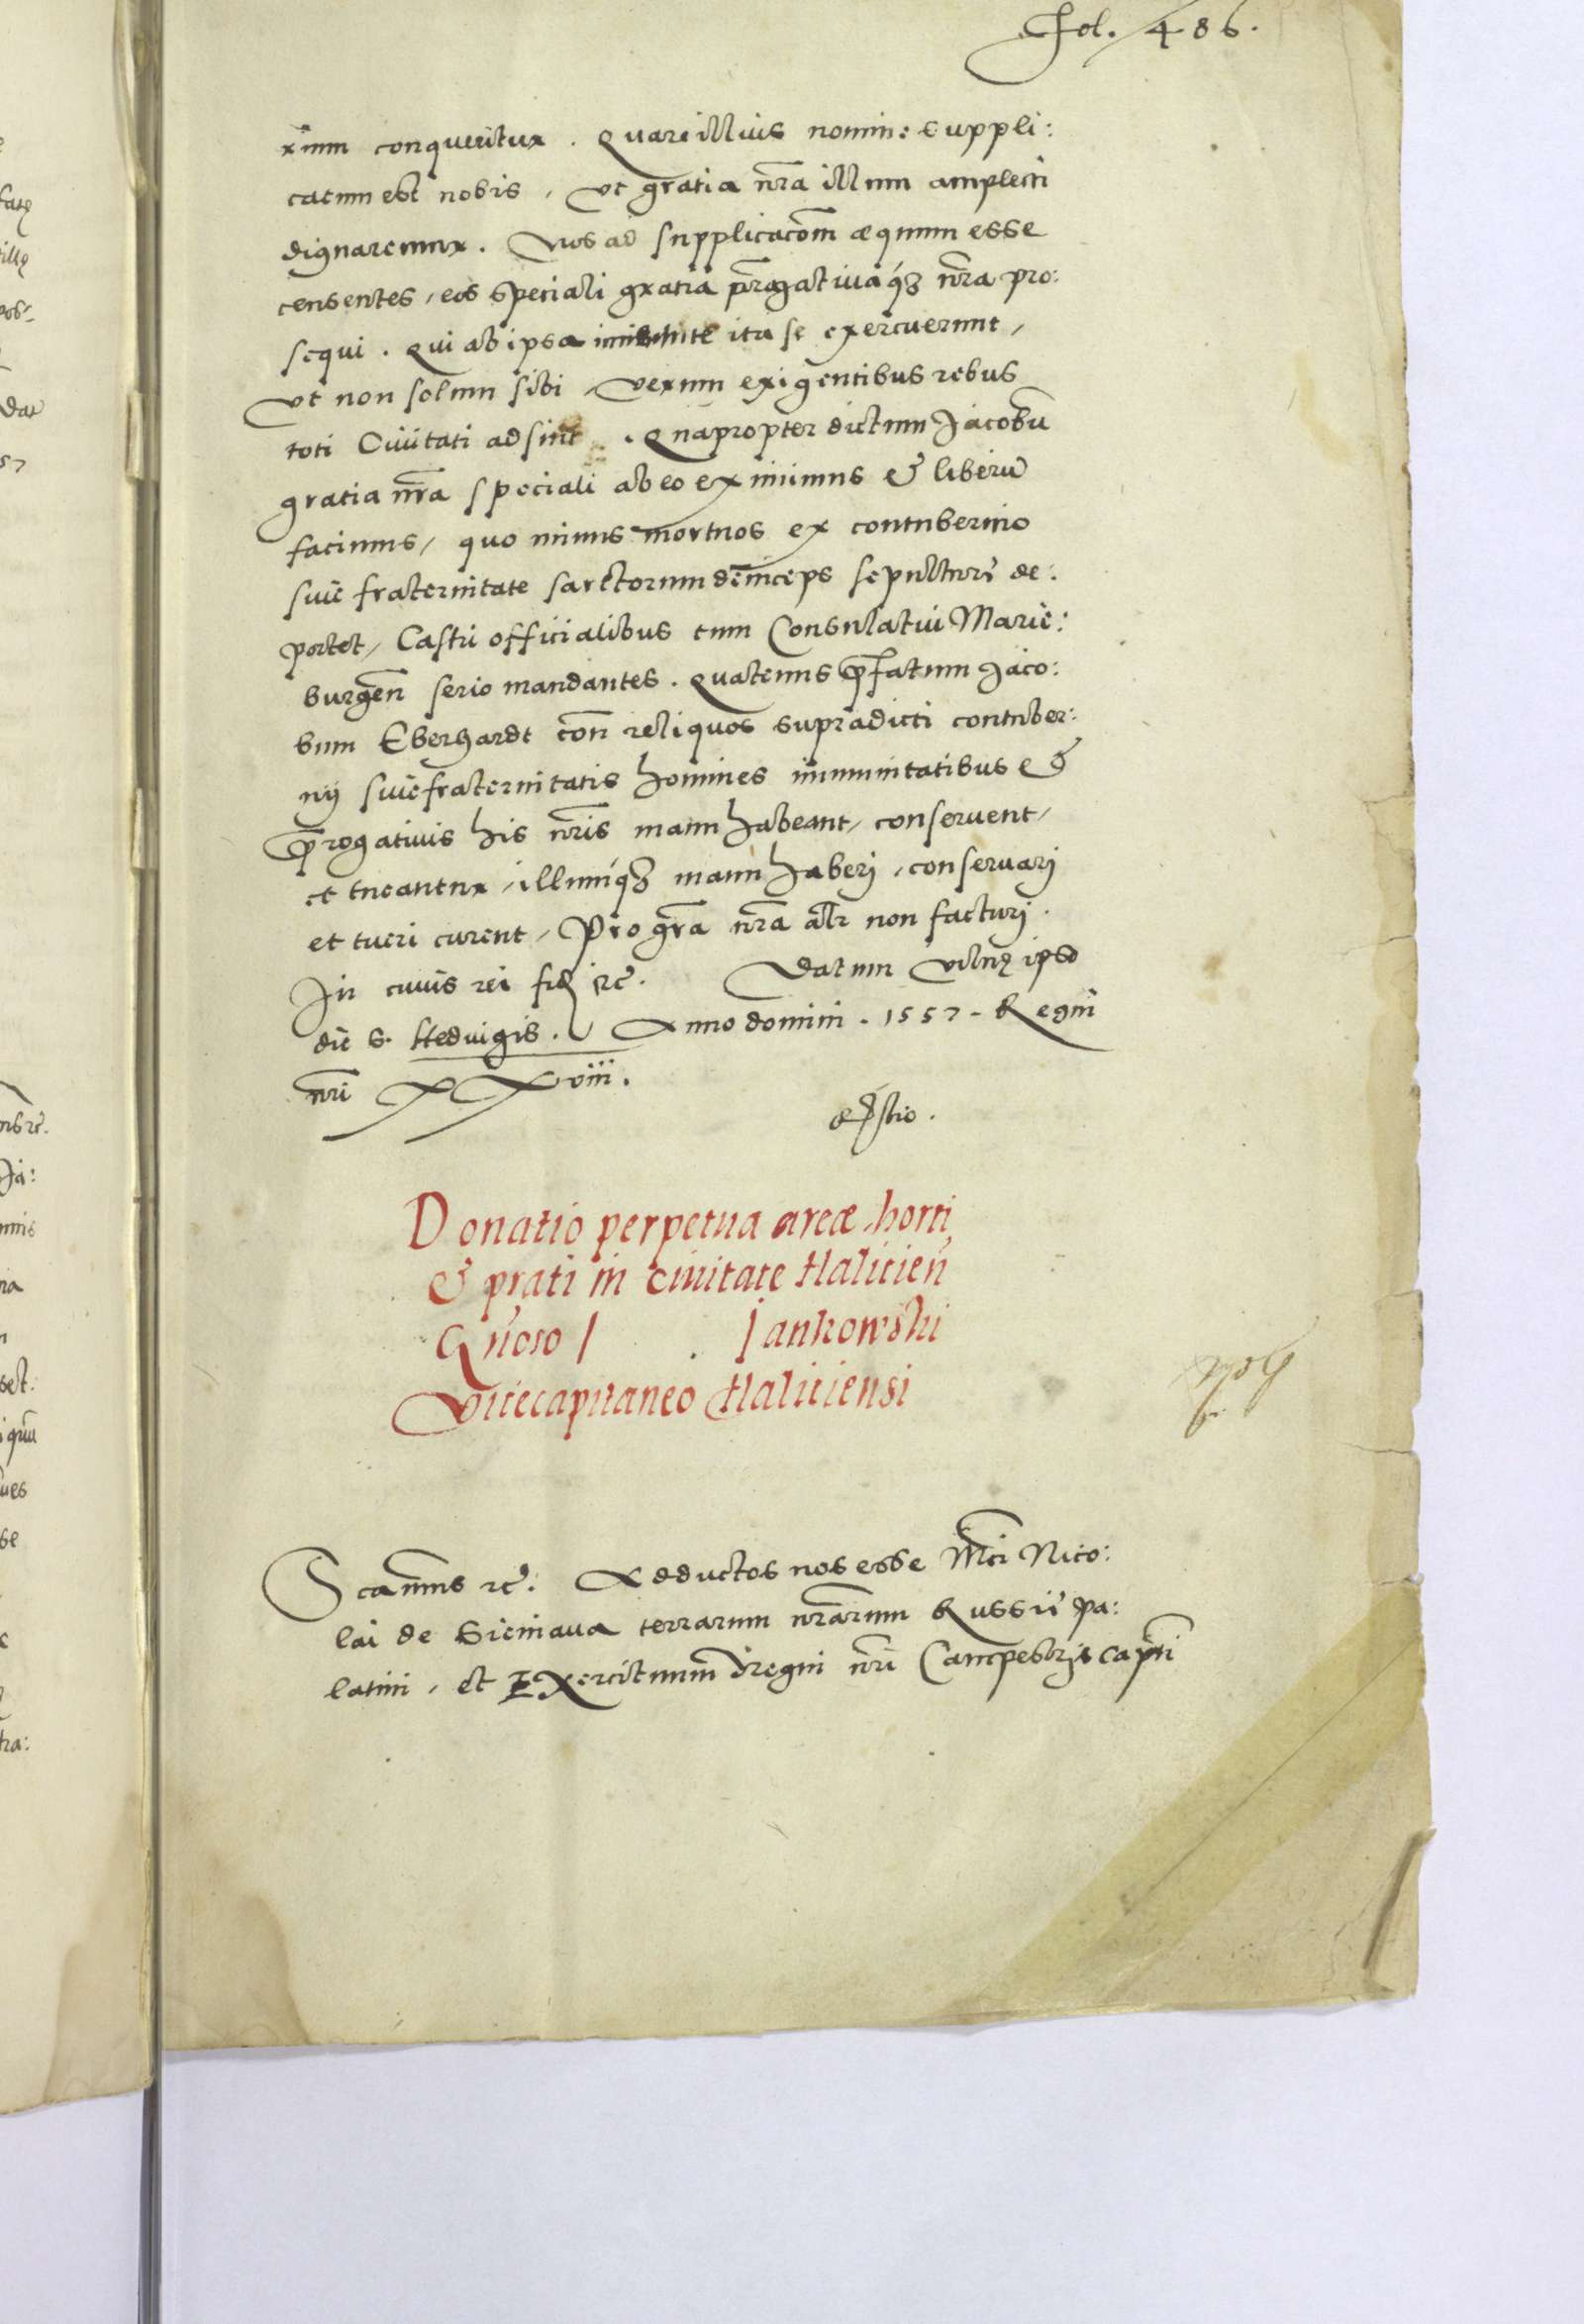 Fol. 486.
rimm conqueritur. Quare illius nomine suppli:
catum est nobis, ut gratia nra illum amplecti
dignaremur. Nos ad supplicacom æquum esse
censentes, eos speciali gratia prrogativaq₃ nra pro:
sequi. Qui ab ipsa iuventute ita se exercuerunt,
Ut non solum sibi, verum exigentibus rebus
toti Civitati adsint. Quapropter dictum Jacobū
gratia nra speciali ab eo eximimus & liberū
facimus, quo minus mortuos ex contubernio
sive fraternitate sartorum deinceps sepulturæ de:
portet, Castri officialibus cum Consulatui Mariæ:
burgen serio mandantes. Quatenus p̄fatum Jaco:
bum Eberhardt con reliquos supradicti contuber:
nij sive fraternitatis homines immunitatibus &
p̄rogativis his nris manuhabeant, conservent,
et tueantur, illumq₃ manuhaberj, conservarj
et tueri curent, Pro gra nra altr non facturj.
In cuius rei fid etc. Datum Vilnę ipso
die S. Hedvigis. Anno domini. 1557. Regni
nri XXviii.
Donatio perpetua areæ horti
& prati in civitate Halicien
Gnoso J Jankowski
Vicecapitaneo Haliciensi
Scimus etc. Adductos nos esse Mci Nico:
lai de Sieniava terrarum nrarum Russiæ pa:
latini, et Exercituum regni nri Campestris capti